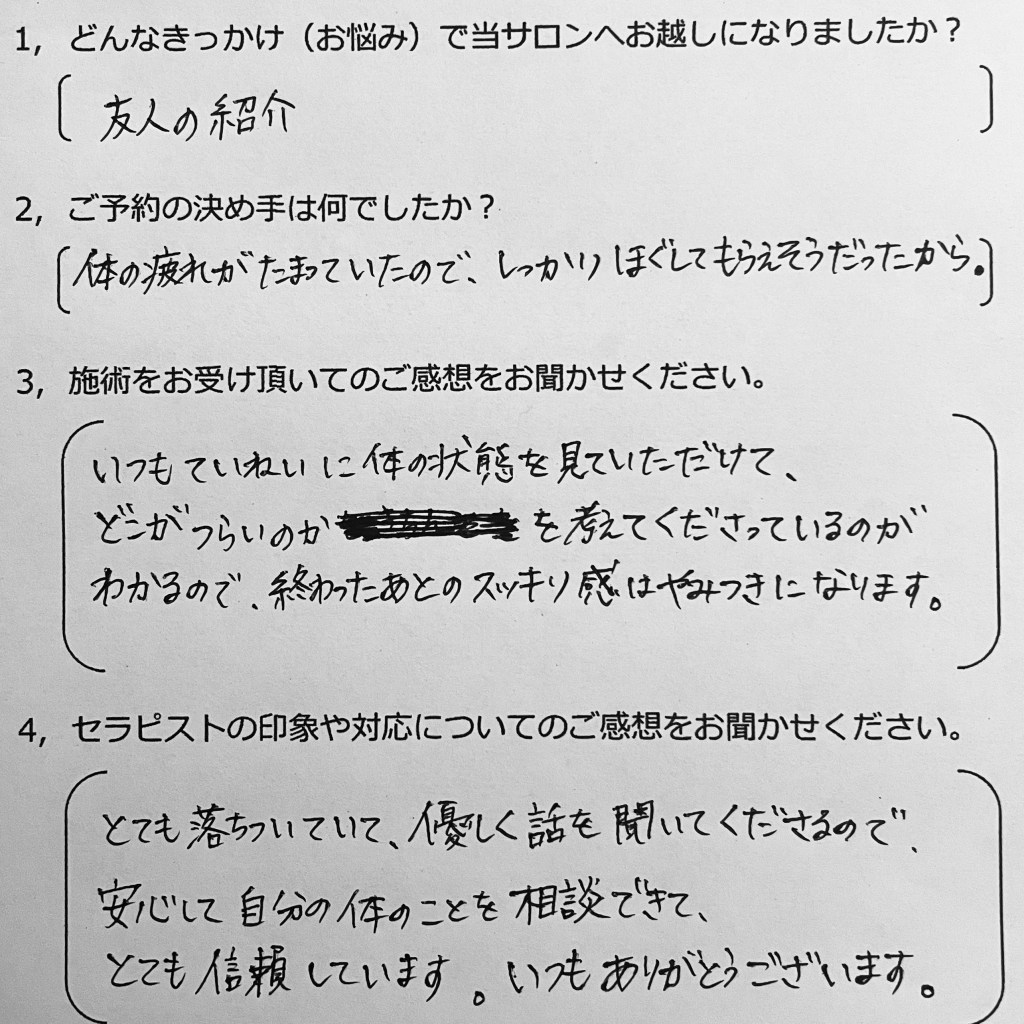 1, どんなきっかけ（お悩み）で当サロンへお越しになりましたか？
友人の紹介
2, ご予約の決め手は何でしたか？
体の疲れがたまっていたので、しっかりほぐしてもらえそうだったから。
3, 施術をお受け頂いてのご感想をお聞かせください。
いつもていねいに体の状態を見ていただけて、
どこがつらいのか を考えてくださっているのが
わかるので、終わったあとのスッキリ感はやみつきになります。
4, セラピストの印象や対応についてのご感想をお聞かせください。
とても落ちついていて、優しく話を聞いてくださるので、
安心して自分の体のことを相談できて、
とても信頼しています。いつもありがとうございます。